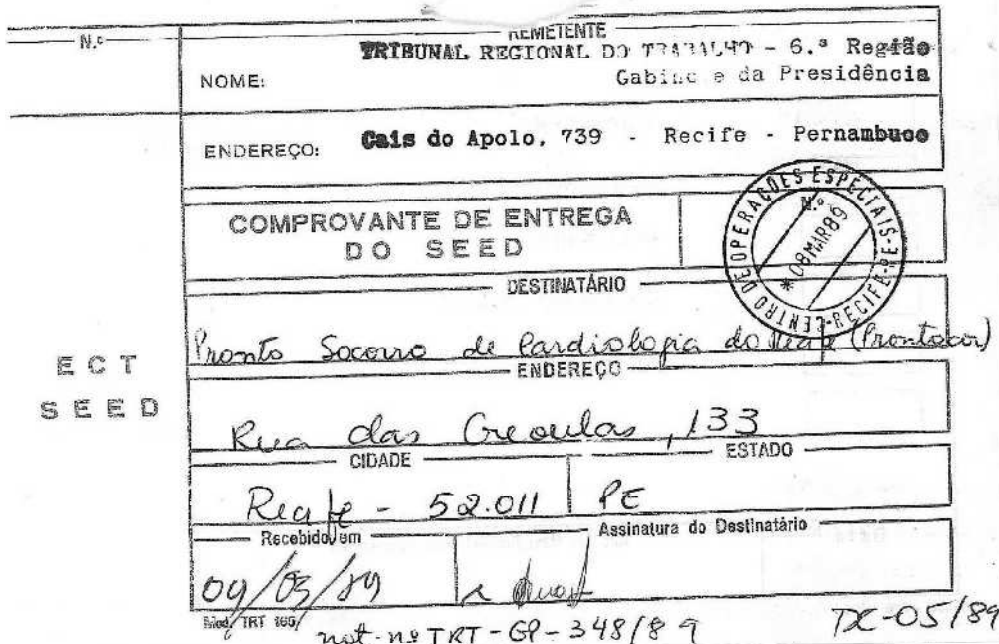 N.º
REMETENTE
NOME: TRIBUNAL REGIONAL DO TRABALHO - 6.ª Região
Gabinete da Presidência
ENDEREÇO: Cais do Apolo, 739 - Recife - Pernambuco
COMPROVANTE DE ENTREGA
DO SEED
N.º
CENTRO DE OPERAÇÕES ESPECIAIS-RECIFE-PE
*08MAR89
DESTINATÁRIO
Pronto Socorro de Cardiologia do Recife (Prontocor)
ECT
SEED
ENDEREÇO
Rua das Creoulas, 133
CIDADE
ESTADO
Recife - 52.011
PE
Recebido em
Assinatura do Destinatário
09/03/89
Mod. TRT 165
not. nº TRT-GP-348/89
DC-05/89